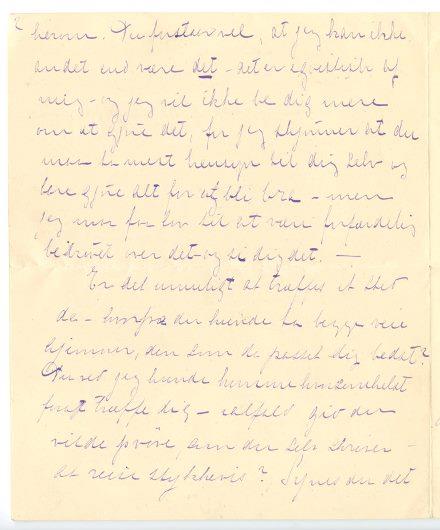 herom. Du forstaar vel, at jeg kan ikke
andet end være det - det er egoistisk af
mig - og jeg vil ikke be dig mere
om at gjøre det, for jeg skjønner at du
maa ta mest hensyn til dig selv og
bare gjøre alt for at bli bra - men
jeg maa faa lov til at være forfærdelig
bedrøvet over det - og si dig det. —
Er det umuligt at træffes et sted
da - hvorfra du kunde ta begge veie
hjemover, den som da passet dig bedst?
du ved jeg kunde komme hvorsomhelst
for at træffe dig - ialfald gid du
vilde prøve, som du selv skriver -
at reise stykkevis? Synes du det